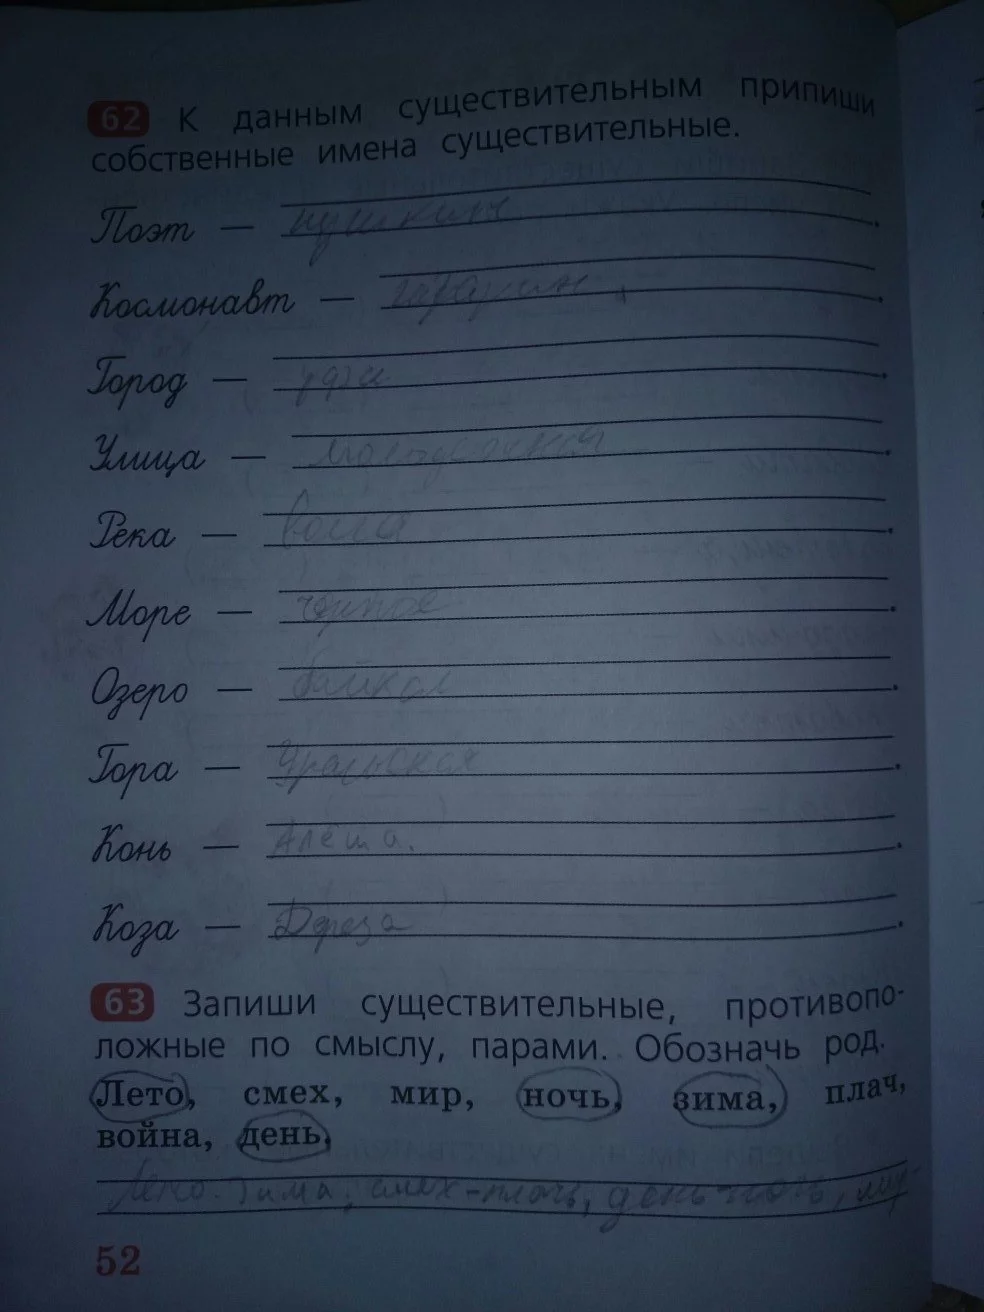 62 К данным существительным припиши
собственные имена существительные.
Поэт — пушкин
Космонавт — гагарин.
Город —
Улица —
Река — волга
Море — чёрное
Озеро — байкал
Гора — Уральская
Конь — Алёша.
Коза — Дереза
63 Запиши существительные, противопо-
ложные по смыслу, парами. Обозначь род.
Лето, смех, мир, ночь, зима, плач,
война, день.
Лето. зима, смех-плачь, день ночь, мир-
52